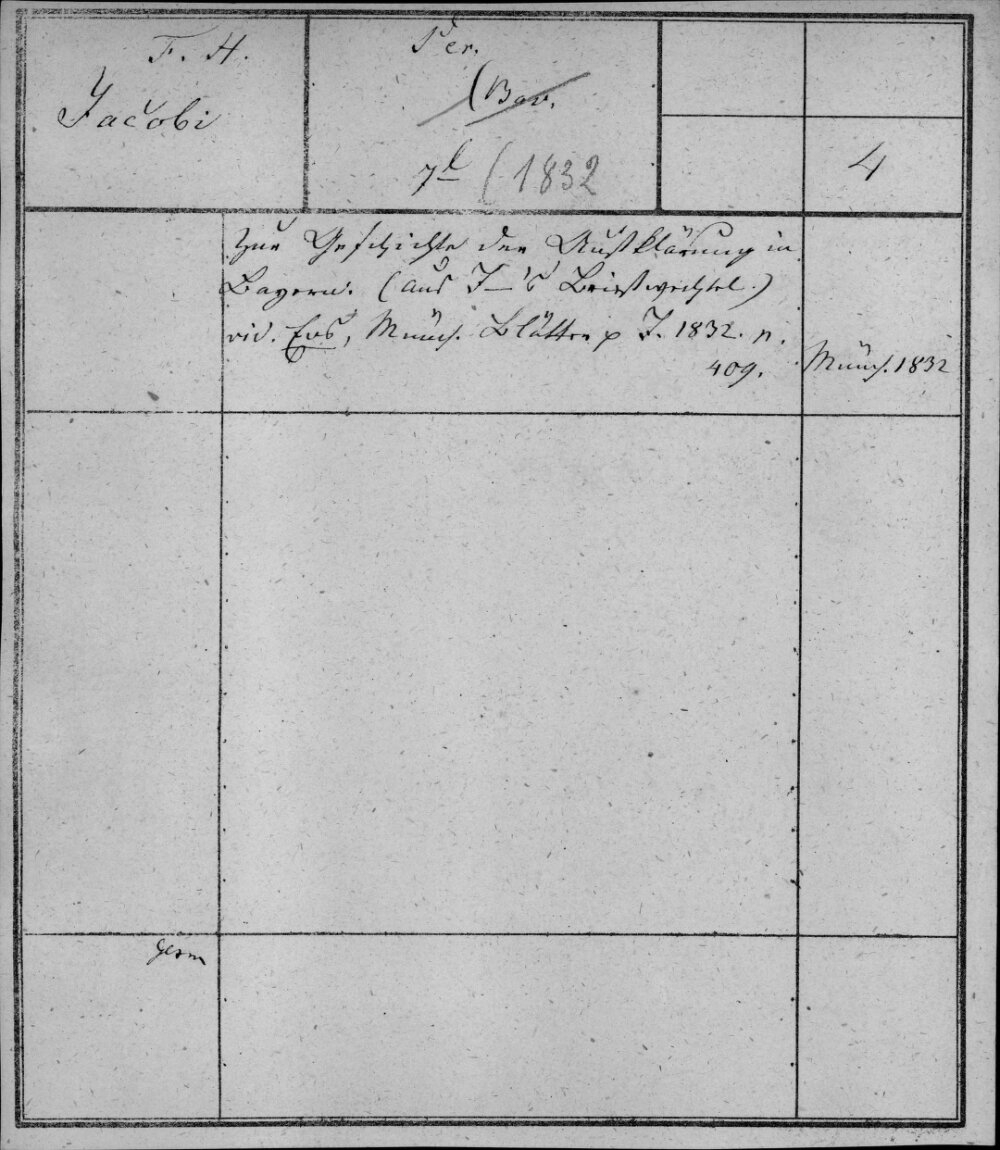 F. H.
Jacobi
Per.
(Bav.
7 l (1832
4
Zur Geschichte der Aufklärung in
Bayern. (aus J—'s Briefwechsel.)
vid. Eos, Münch. Blätter p J. 1832. n.
409.
Münch. 1832
germ